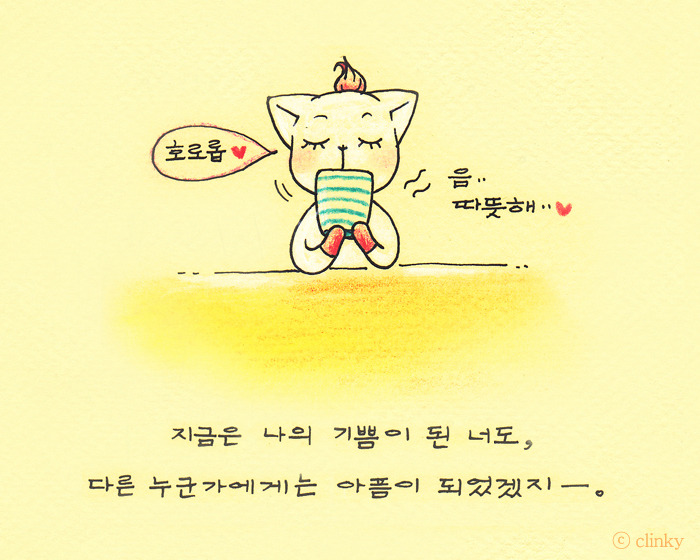 호로롭♥
음..
따뜻해..♥
지금은 나의 기쁨이 된 너도,
다른 누군가에게는 아픔이 되었겠지ㅡ。
ⓒ clinky